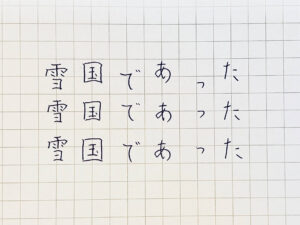 雪国であった
雪国であった
雪国であった